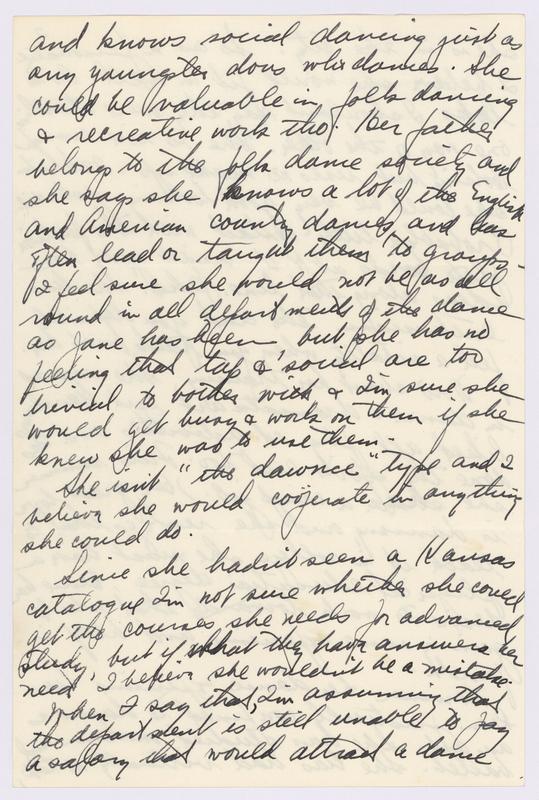 and knows social dancing just as
any youngster does who dances. She
could be valuable in folk dancing
& recreative work tho. Her father
belongs to the folk dance society and
she says she knows a lot of the English
and American country dances, and has
often lead or taught them to groups -
I feel sure she would not be as all
round in all departments of the dance
as Jane has been but she has no
feeling that tap & social are too
trivial to bother with & I'm sure she
would get busy & work on them if she
knew she was to use them.
She isn't "the dawnce" type and I
believe she would coöperate in anything
she could do.
Since she hadn't seen a Kansas
catalogue I'm not sure whether she could
get the courses she needs for advanced
study, but if what they have answers her
need, I believe she wouldn't be a mistake.
When I say that, I'm assuming that
the department is still unable to pay
a salary that would attract a dance